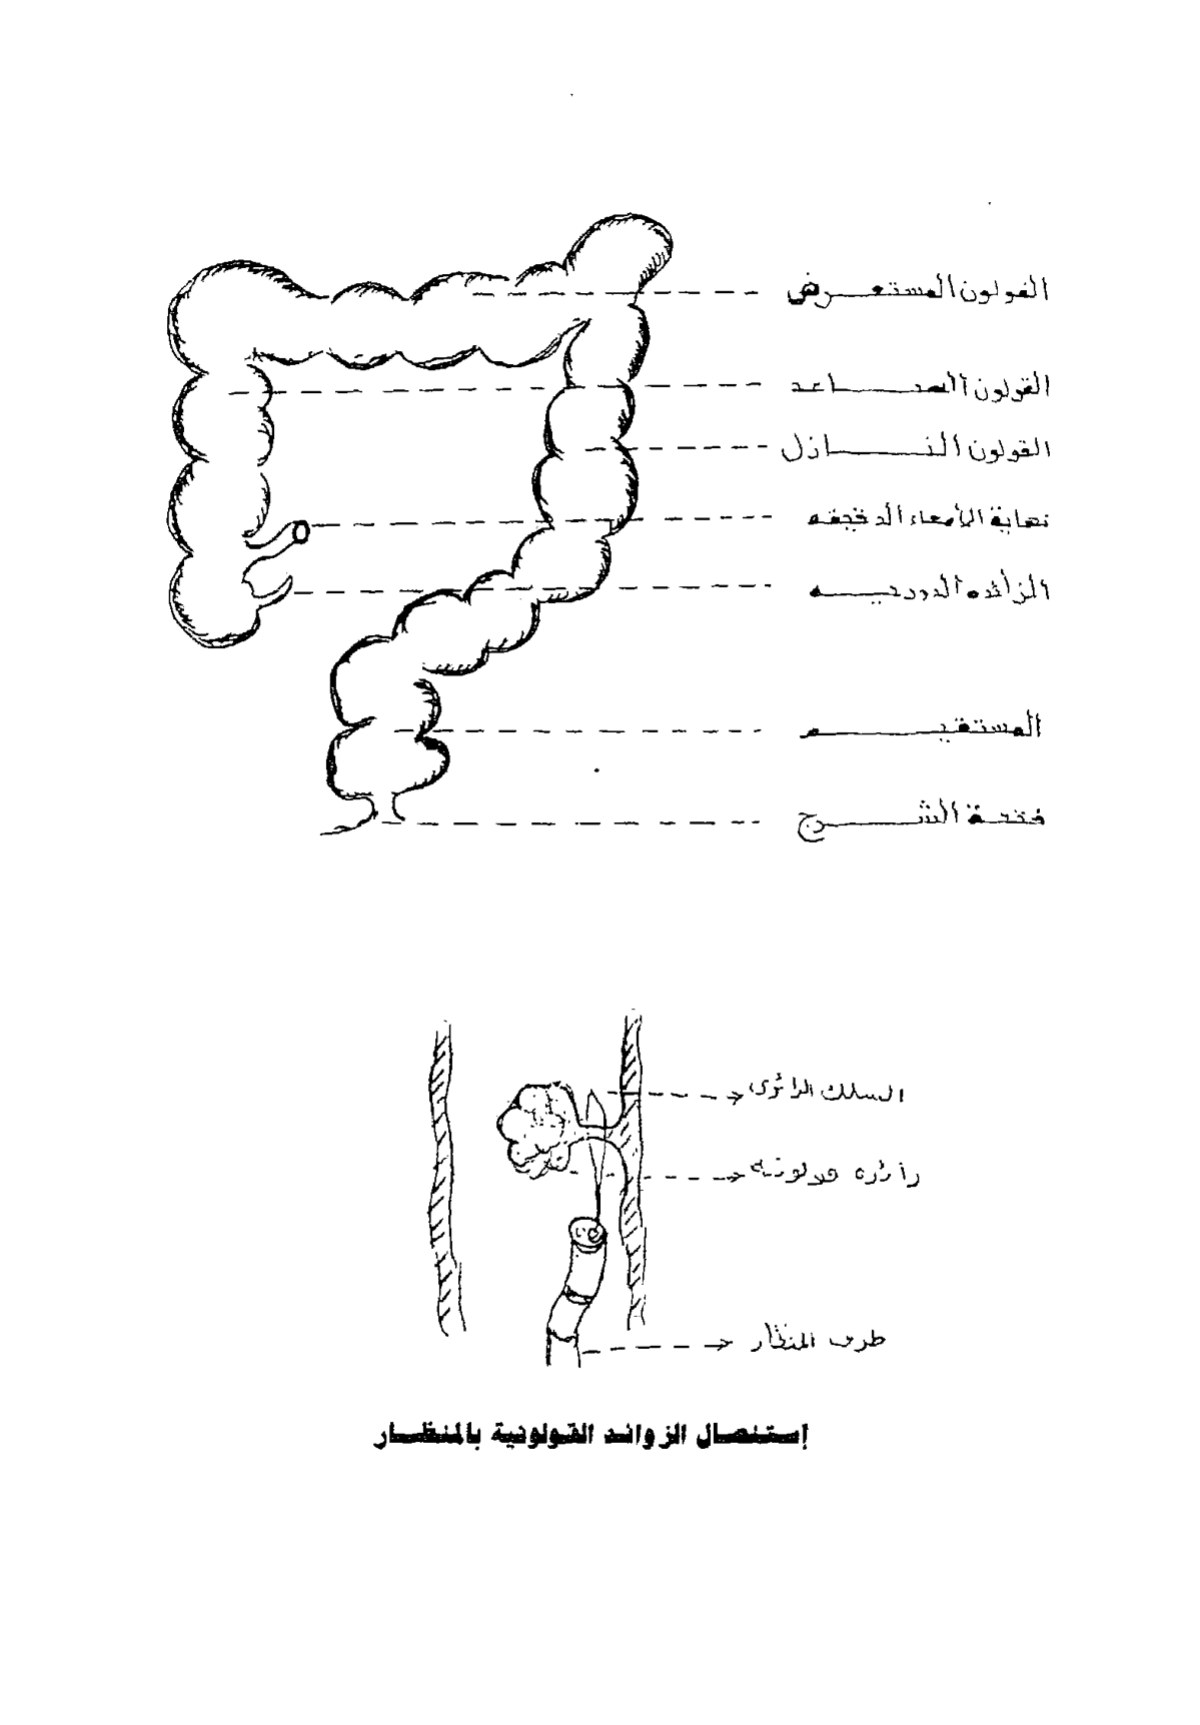 القولون المستعرض
القولون الصاعد
القولون النازل
نهاية الأمعاء الدقيقه
الزائده الدوديه
المستقيم
فتحة الشرج
السلك الدائرى
زائده قولونيه
طرف المنظار
إستئصال الزوائد القولونية بالمنظار